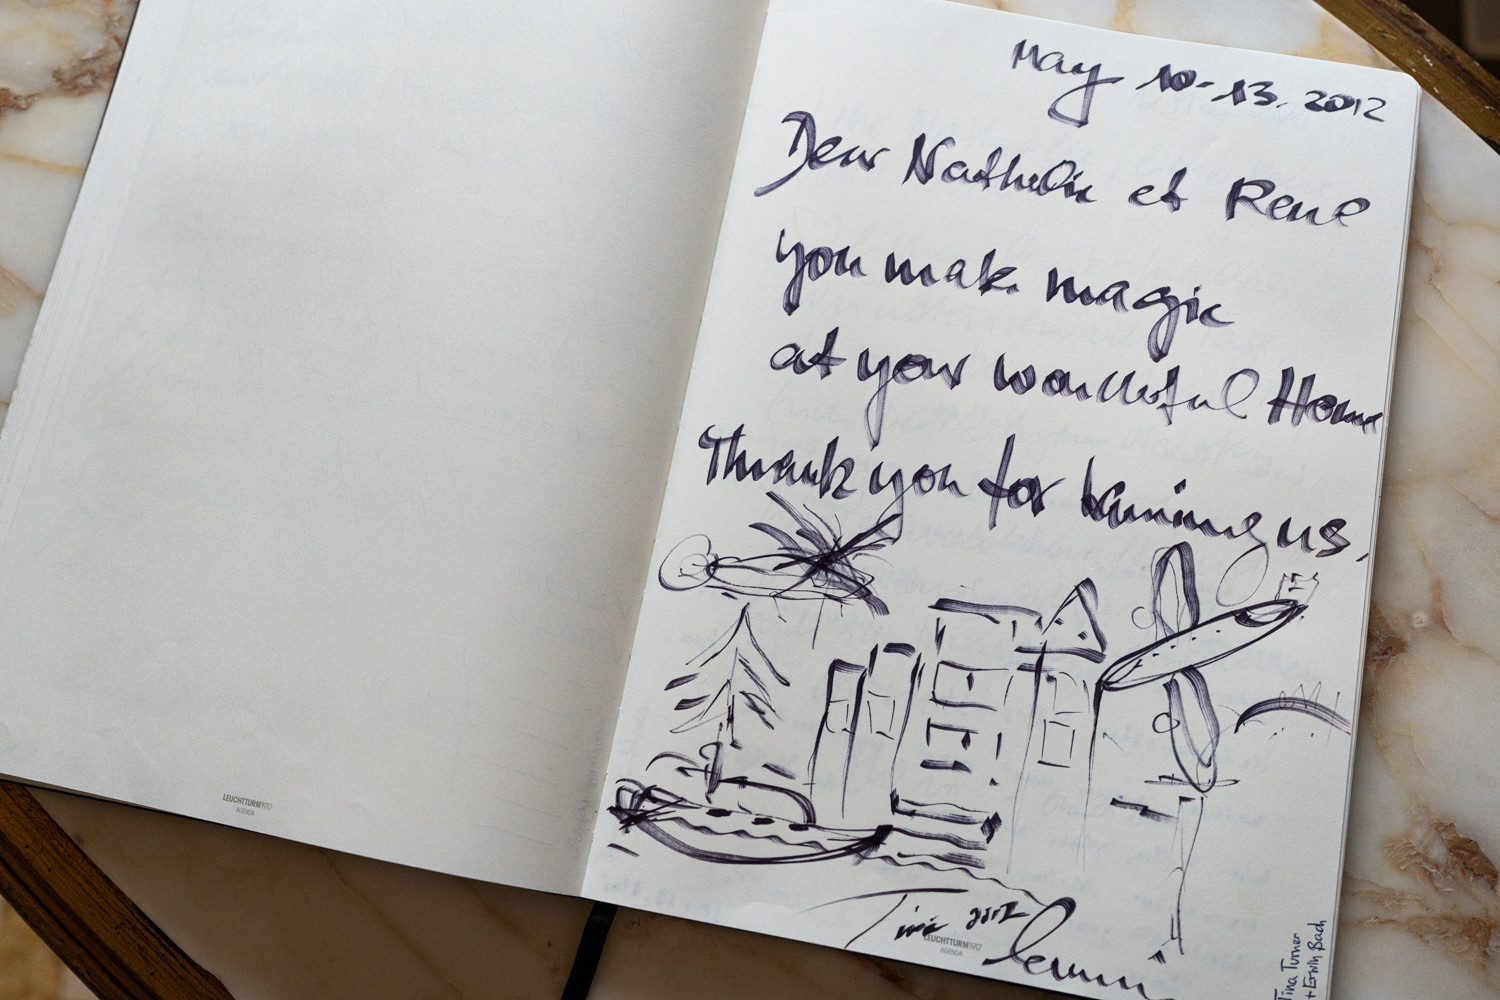 May 10-13. 2012
Dear Nathalie et René
you make magic
at your wonderful Home
Thank you for having us,
Tina 2012
LEUCHTTURM1917
AGENDA
Tina Turner
+ Erwin Bach
LEUCHTTURM1917
AGENDA